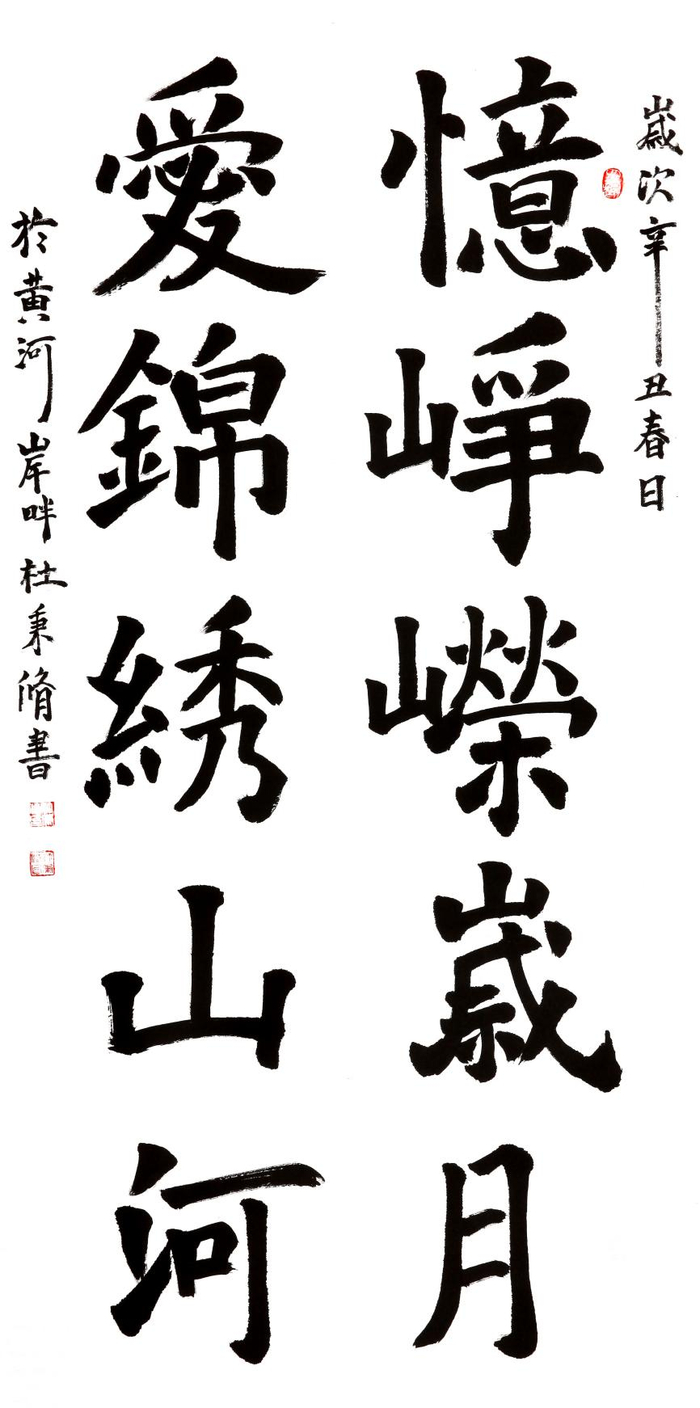 歲次辛丑春日
憶崢嶸歲月
愛錦綉山河
於黄河岸畔杜秉脩書